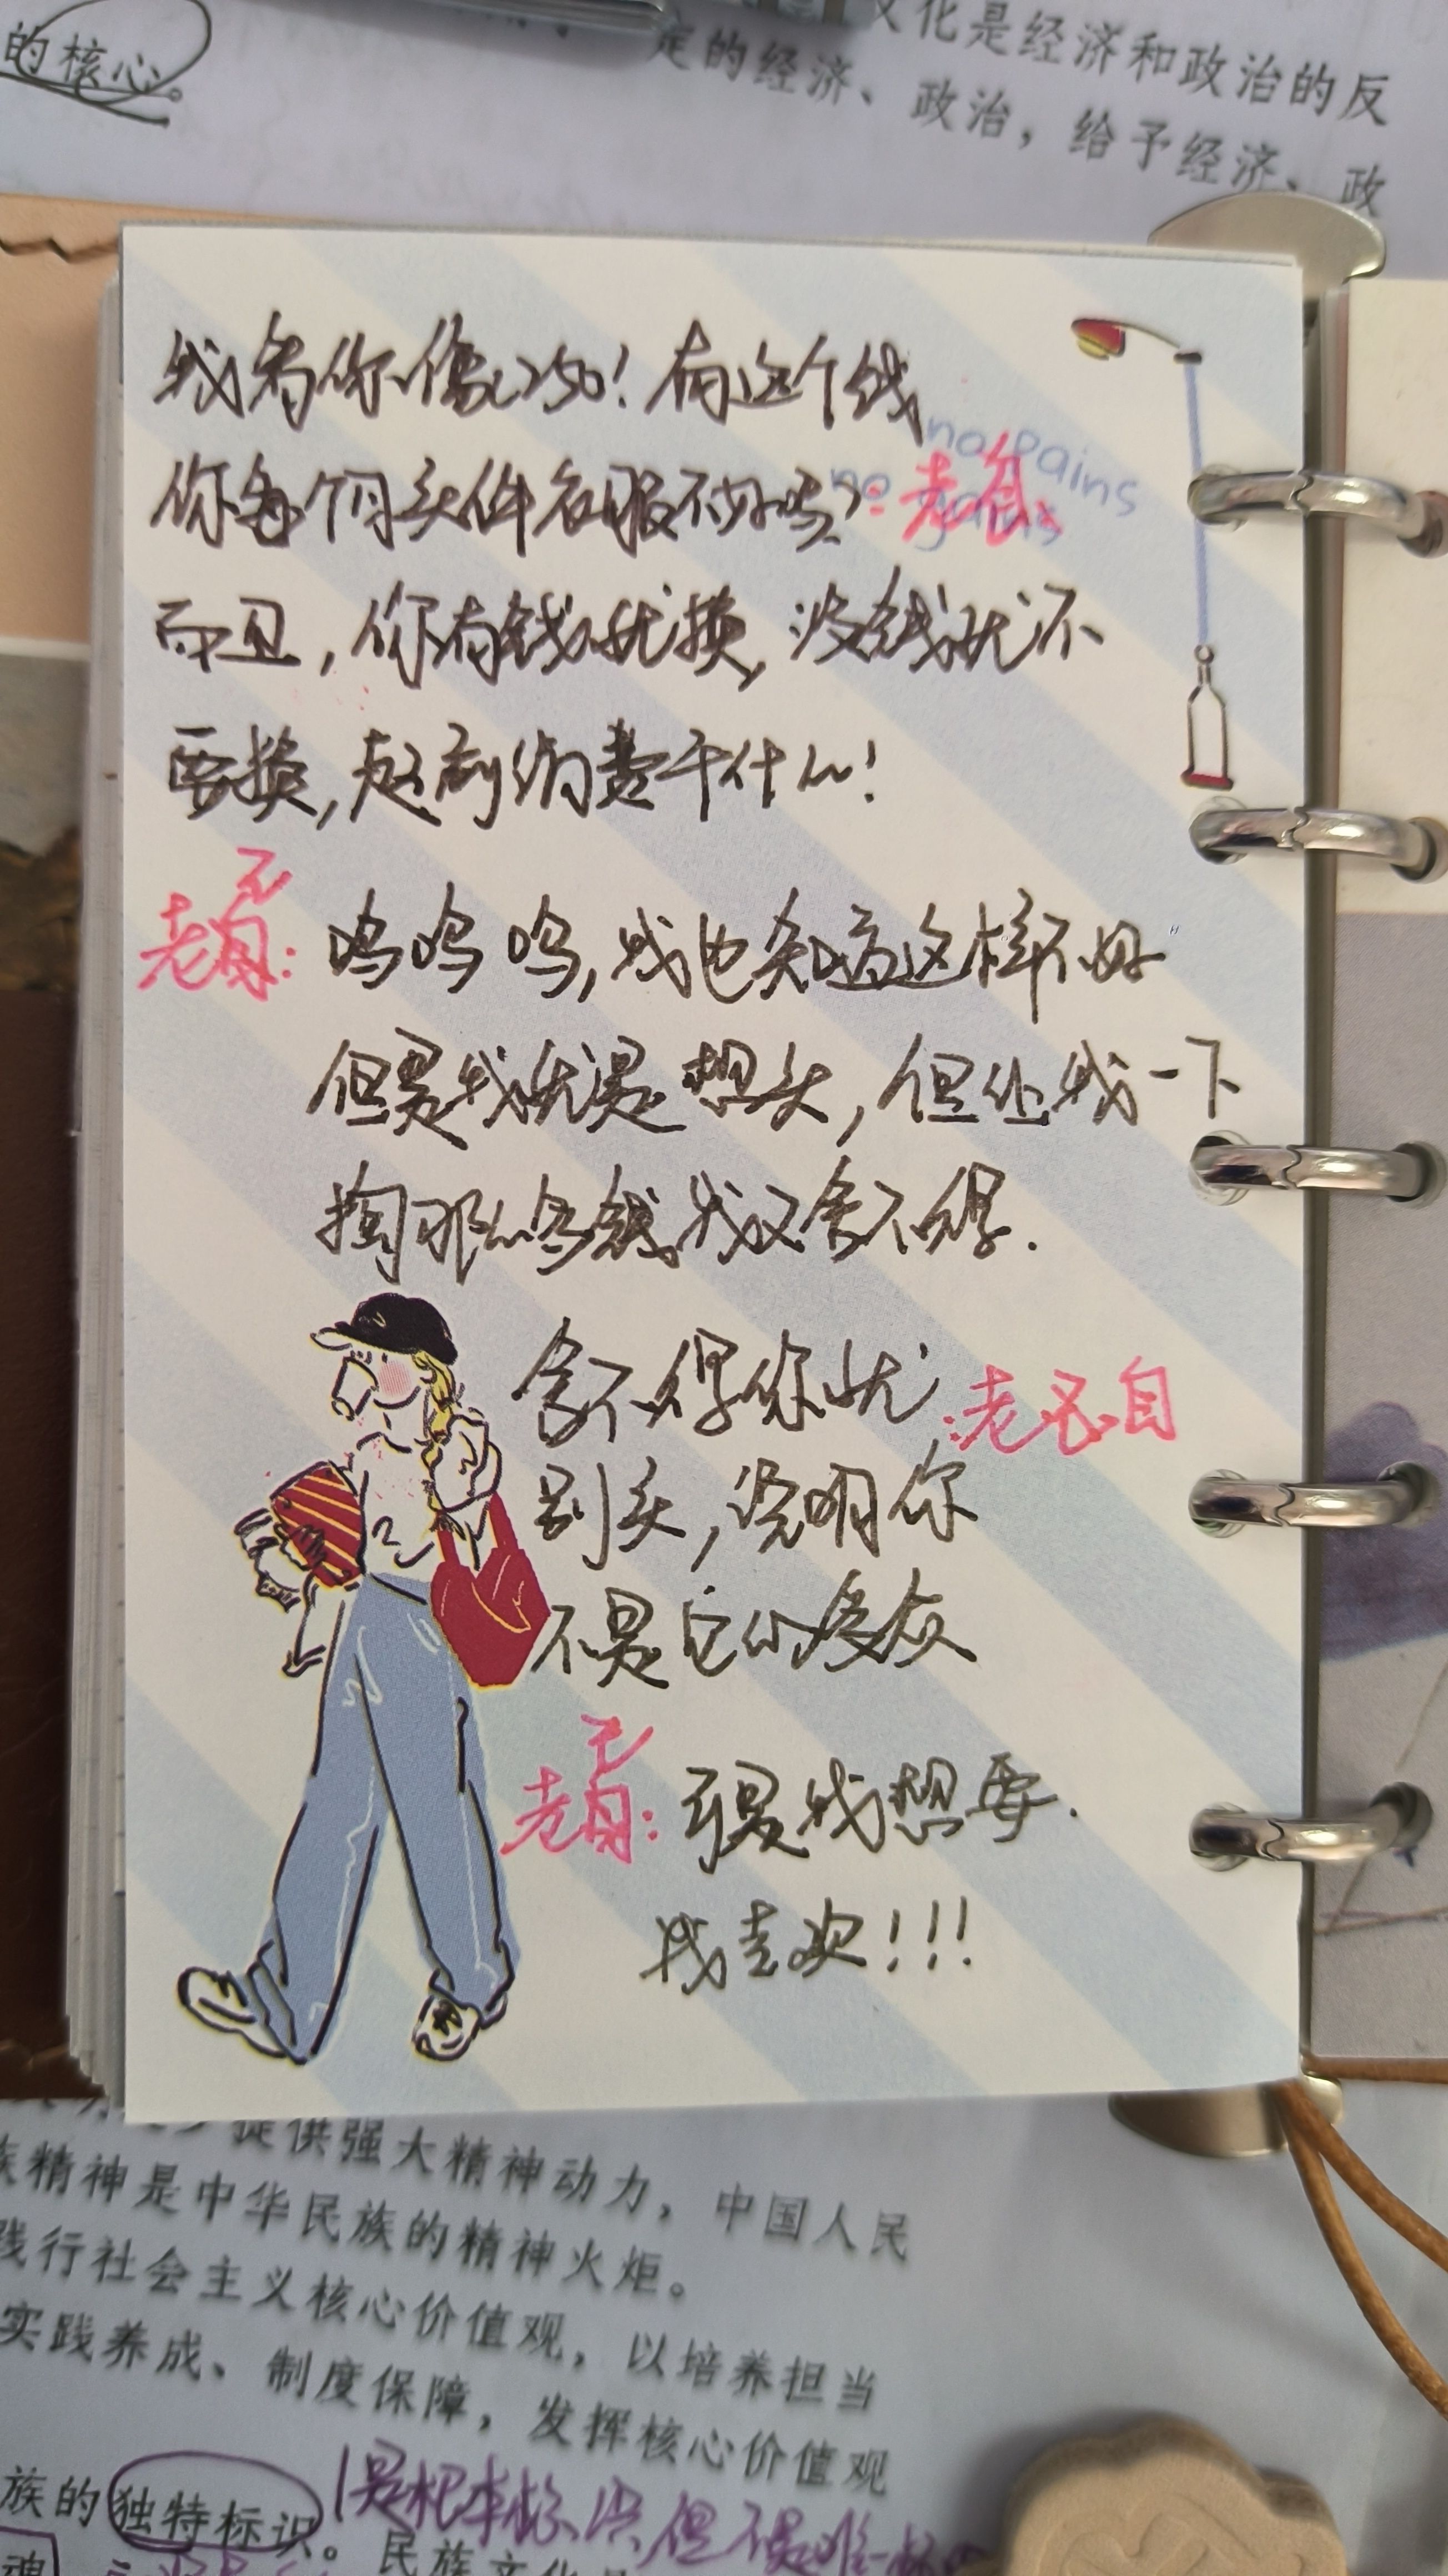 的核心
文化是经济和政治的反
定的经济、政治，给予经济、政
我看你像250！有这个钱
no pains
no gains
你每个月买件衣服不好吗？：老自
而且，你有钱就换，没钱就不
要换，超前消费干什么！
老忍自：呜呜呜，我也知道这样不好
但是我就是想买，但让我一下
掏那么多钱我又舍不得.
舍不得你就：老忍自
别买，说明你
不是它的受众
老忍自：可是我想要.
我喜欢！！！
提供强大精神动力，中国人民
族精神是中华民族的精神火炬。
践行社会主义核心价值观，以培养担当
实践养成、制度保障，发挥核心价值观
族的独特标识。
是根本标识，但不是唯一标
民族文化
魂